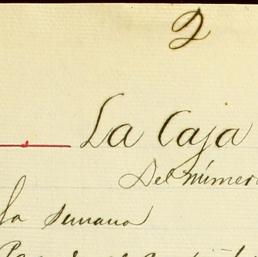 2
La Caja
Del númer
la semana